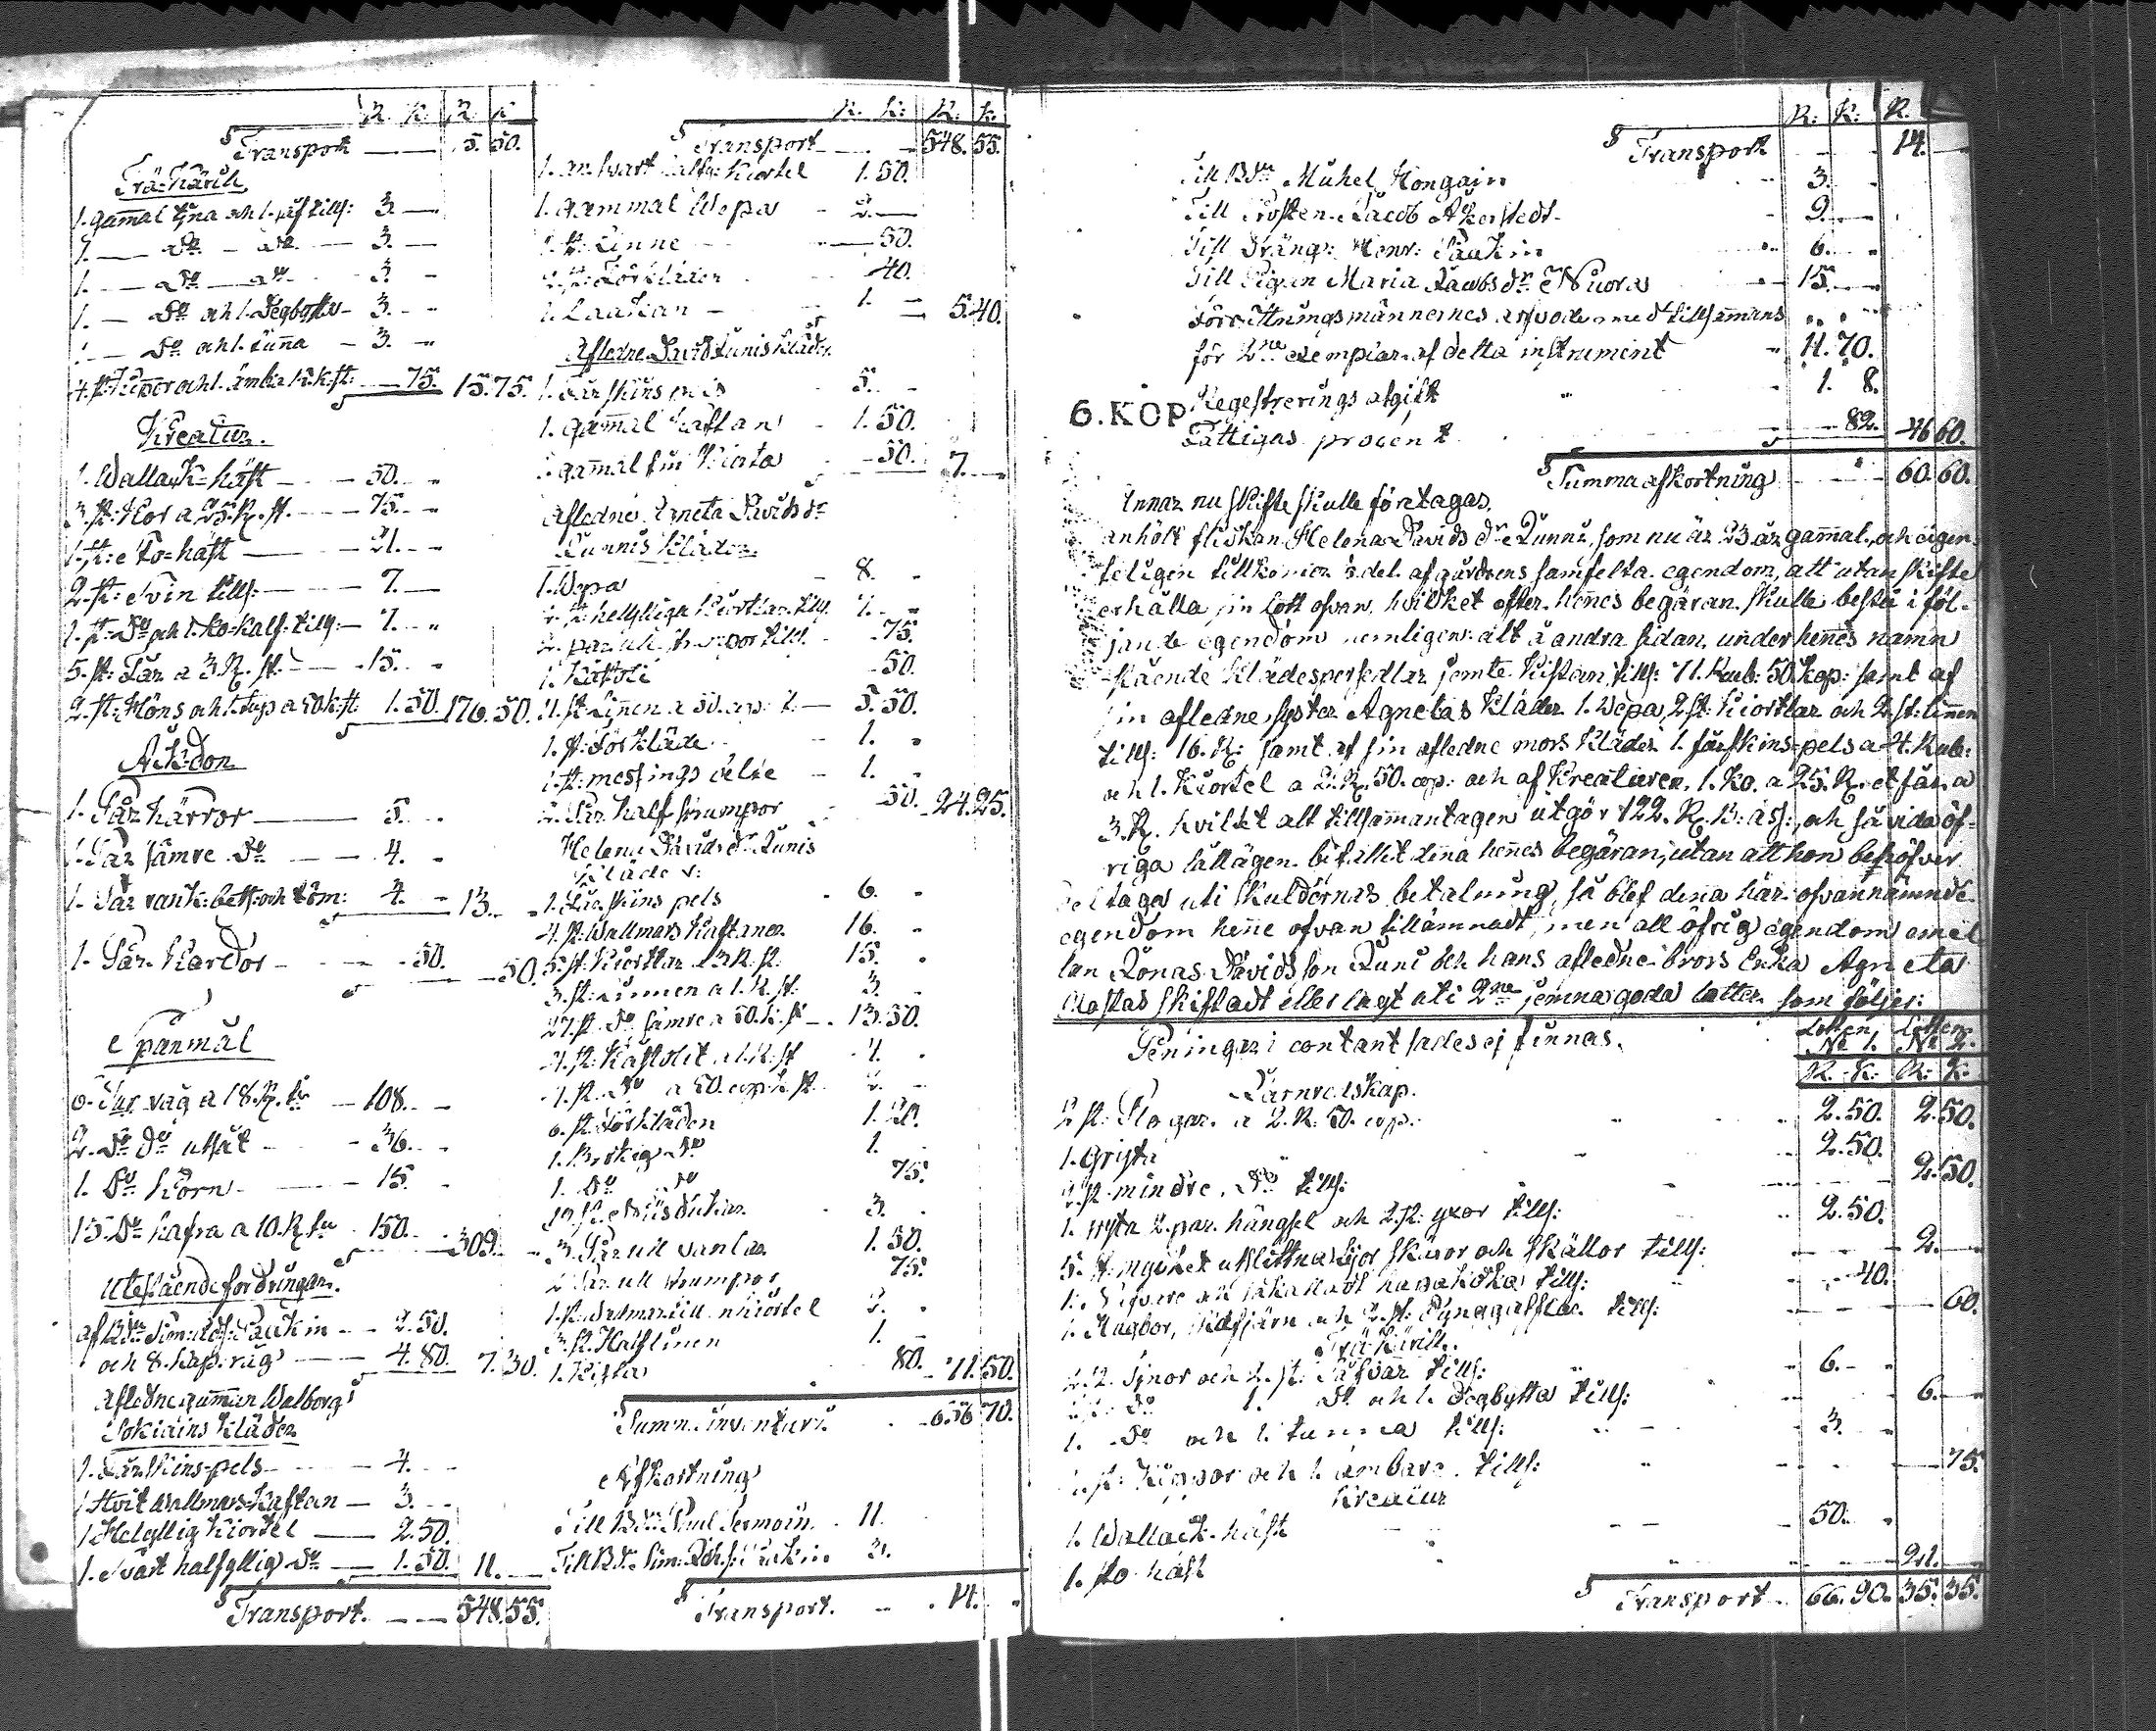 R. K. R. K.
Transport — 5. 50.
Trä-Kärill
1. gamal tina och 1. såf tills: 3. —
1. — Do — do — 3. —
1. — Do — do — 3. —
1. — Do och 1. degbytta — 3. —
1. — Do och 1. tunna — 3. —
4. st: Kippor och 1. ämbar K. st: — 75. 15. 75.
Kreatur.
1. Wallack-häst — 50. —
3. st: Kor a 25. R. st. — 75. —
1. st: Sto-häst — 21. —
2. st: Svin tills: — 7. —
1. st: Do och 1. ko-kalf tills: — 7. —
5. st: Får a 3 R. st. — 15. —
2. st: Höns och 1. tupp a 50 k. st: 1. 50. 176. 50.
Åkdon
1. Par kärror — 5. —
1. Par sämre Do — 4. —
1. Par rank: bett: och töm: 4. — 13. —
1. Par Kardor — 50. — 50.
Spanmål
6. Tur råg a 18. R. tr — 108. —
2. Do Do utsåt — 36. —
1. Do Korn — 15. —
15. Do hafra a 10. R. tr — 150. — 309. —
Utestående fordringar.
af Bdn Sim: Adf: Paukin — 2. 50.
och 8. kap. råg — 4. 80. 7. 30.
Afledne gumman Walborg
Sokiains Kläder
1. Fårskins-pels — 4. —
1. Hvit wallmars-Kaftan — 3. —
1. Helyllig Kiortel — 2. 50.
1. Svart halfyllig Do — 1. 50. 11. —
Transport. — 548. 55.
R. K: R. K.
Transport — 548. 55.
1. sv: svart halfy: Kiortel 1. 50.
1. gammal Wepa — 2. —
1. st: Linne — 50.
2. st: Förkläden — 40.
1. Laakan — 1. — 5. 40.
Afledne David Kunis kläder
1. Fårskins pels — 5. —
1. gammal kaftan — 1. 50.
1. gammal skin Kiorta — 50. 7. —
Afledne Agneta Davidsdr
Kunnis Kläder.
1. Wepa — 8. —
2. st: helylliga Kiortlar tills. 7. —
2. par ull strumpor tills. — 75.
1. Kattoli — 50.
11. st: Linnen a 50. cop: st. — 5. 50.
1. st: Förkläde — 1. —
1. st: messings bälte — 1. —
2. Par half strumpor — 50. 24. 25.
Helena Davids dr Kunis
Kläder:
1. Fårskins pels — 6. —
4. st. Wallmars Kaftaner 16. —
5. st. Kiortlar a 3 R. st. 15. —
3. st: Linnen a 1. R. st: 3. —
27. st. Do sämre a 50. k. st — 13. 50.
4. st: Kattolit a 1. R. st 4. —
4. st. Do a 50. cop: st. 2. —
6. st. Förkläden 1. 20.
1. Brokig Do 1. —
1. Do Do 75.
12. st. Snusdukar 3. —
3. Par ull vantar 1. 50.
2. Par ull strumpor 75.
3. st. Halflinen 1. —
1. Kista 80. 71. 50.
Summa inventarii. — 656. 70.
Afkortning
Till Bdn Paul Termoin. 11.
Till Bd: Sim: Adf: Paukin 3.
Transport. — 14. —
R: K: R.
Transport — 14. —
Till Bdn Mickel Hongain 3. —
Till Prosten Jacob Åkerstedt — 9. —
Till Dräng: Henr: Paukin 6. —
Till Pigan Maria Jacobsdr Nuora 15. —
Förrättningsmännernes arfvode med tillsammans
för 2ne exemplar af detta instrument 11. 70.
Regestrerings afgift 1. 8.
6. KOP
Fattigas procent — 82. 46 60.
Summa afkortning — 60. 60.
Innan nu skifte skulle företagas,
anhölt flickan Helena Davids dr Kunni, som nu är 23 år gammal, och eigen-
teligen tillkommer ⅓ del af gårdens samfelta egendom, att utan skifte
erhålla sin lott ofvan, hvilket efter hennes begäran skulle bestå i föl-
jande egendom nemligen: alt å andra sidan under hennes namn
stående klädespersedlar jemte Kistan, tills: 71. Rub: 50 Kop: samt af
sin afledne syster Agnetas Kläder 1. Wepa, 2. st: Kiortlar och 2. st: linnen
tills: 16. R: samt af sin afledne mors kläder 1. fårskins-pels a 4. Rub:
och 1. Kiortel a 2. R. 50. cop: och af Kreaturen 1. Ko. a 25. R. et får a
3. R. hvilket alt tillsammantagen utgör 122. R. B: ass:, och så vida öf-
riga lättägen. bifallit denna hennes begäran, utan att hon behöfver
deltaga uti skuldernas betalning, så blef denna här ofvannämnde
egendom henne ofvan tillämnadt, men all öfrig egendom emel-
lan Jonas Davids son Kuni och hans afledne brors Enka Agneta
skiftadt eller lagt uti 2ne jemna goda lotter som följer:
Penningar i contant sades ej finnas.
Lotten No 1. Lotten No 2.
R. K: R: K.
Järnredskap.
2. st: Plogar a 2. R. 50. cop. 2. 50. 2. 50.
1. Gryta 2. 50.
2. st. mindre Do tills: 2. 50.
1. yta 2. par. hängsel och 2. st: yxor tills: 2. 50.
5. st: mycket utslittna lijor skäror och skällor tills: 2. —
40.
60.
Trä-Kärill.
2. Tinor och 2. st: Såfvar tills: 6. —
Do 1. Do och 1. degbytta tills: 6. —
1. Do och 1. tunna tills: 3. —
4. st: Kippor och 1. ämbare. tills: 75.
Kreatur
1. Wallack-häst 50. —
1. Sto häst 21. —
Transport. 66. 90. 35. 35.